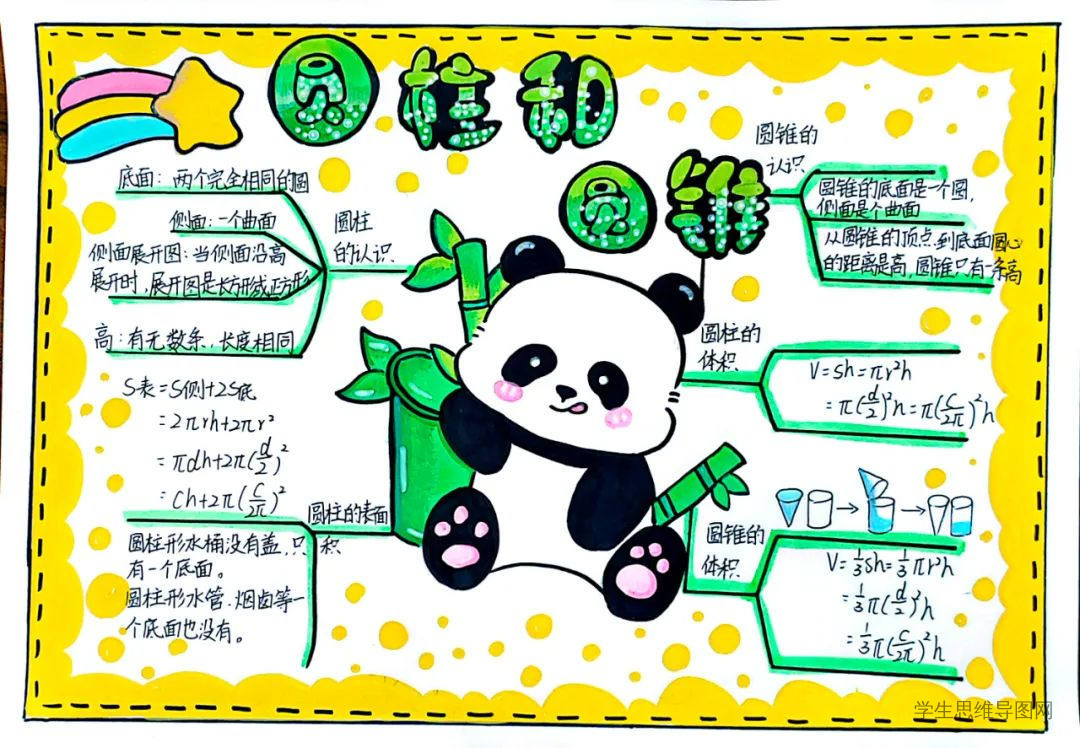 圆柱和
圆锥
圆柱
的认识
底面：两个完全相同的圆
侧面：一个曲面
侧面展开图：当侧面沿高
展开时，展开图是长方形或正方形
高：有无数条，长度相同
圆柱的表面
积
S表=S侧+2S底
=2πrh+2πr²
=πdh+2π(d/2)²
=Ch+2π(C/2π)²
圆柱形水桶没有盖，只
有一个底面。
圆柱形水管、烟囱等一
个底面也没有。
圆锥的
认识
圆锥的底面是一个圆，
侧面是个曲面
从圆锥的顶点到底面圆心
的距离是高，圆锥只有一条高
圆柱的
体积
V=Sh=πr²h
=π(d/2)²h=π(C/2π)²h
圆锥的
体积
V=1/3Sh=1/3πr²h
=1/3π(d/2)²h
=1/3π(C/2π)²h
学生思维导图网